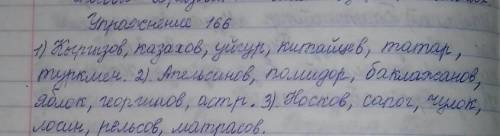 Упражнение 166
1) Кыргизов, казахов, уйгур, китайцев, татар,
туркмен. 2) Апельсинов, помидор, баклажанов,
яблок, георгинов, астр. 3) Носков, сапог, чулок,
лосин, рельсов, матрасов.